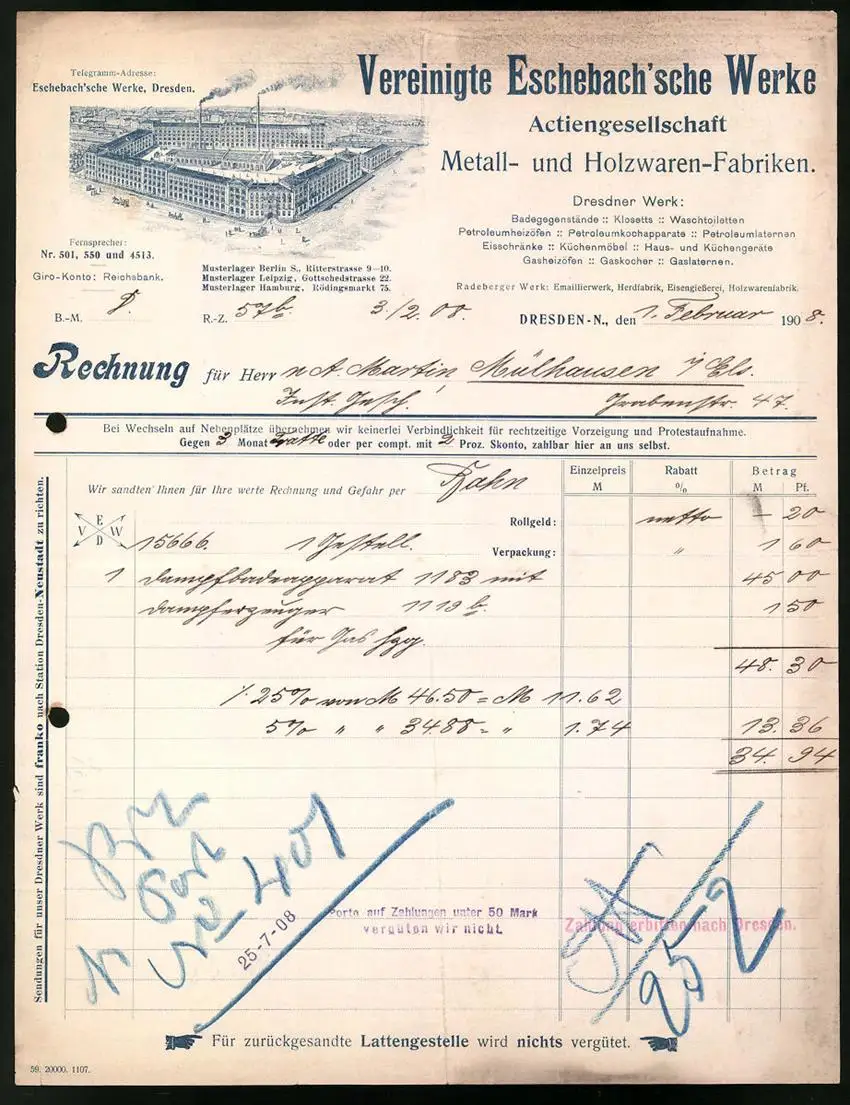 Telegramm-Adresse:
Eschebach'sche Werke, Dresden.
Vereinigte Eschebach'sche Werke
Actiengesellschaft
Metall- und Holzwaren-Fabriken.
Dresdner Werk:
Badegegenstände :: Klosetts :: Waschtoiletten
Petroleumheizöfen :: Petroleumkochapparate :: Petroleumlaternen
Eisschränke :: Küchenmöbel :: Haus- und Küchengeräte
Gasheizöfen :: Gaskocher :: Gaslaternen.
Radeberger Werk: Emaillierwerk, Herdfabrik, Eisengießerei, Holzwarenfabrik.
Fernsprecher:
Nr. 501, 550 und 4513.
Giro-Konto: Reichsbank.
Musterlager Berlin S., Ritterstrasse 9—10.
Musterlager Leipzig, Gottschedstrasse 22.
Musterlager Hamburg, Rödingsmarkt 75.
B.-M. R.-Z. 57b. 3./2. 08.
DRESDEN-N., den 1. Februar 1908.
Rechnung für Herr n A. Martin, Mülhausen i/Els.
Inst. Gesch. Grabenstr. 47.
Bei Wechseln auf Nebenplätze übernehmen wir keinerlei Verbindlichkeit für rechtzeitige Vorzeigung und Protestaufnahme.
Gegen 3 Monat Tratte oder per compt. mit 2 Proz. Skonto, zahlbar hier an uns selbst.
Wir sandten Ihnen für Ihre werte Rechnung und Gefahr per Bahn
Einzelpreis M Rabatt % Betrag M Pf.
Rollgeld: netto — 20
V E W D 15666. 1 Gestell. Verpackung: " 1 60
1 Dampfbadeapparat 1183 mit 45 00
Dampferzeuger 1119 b. 1 50
für Gas hzg.
48. 30
./. 25% von M 46.50 = M 11.62
5% " " 34.88 = " 1.74 13. 36
34. 94
No 401
25-7-08
Porto auf Zahlungen unter 50 Mark
vergüten wir nicht.
Zahlung erbitten nach Dresden.
25 2
Für zurückgesandte Lattengestelle wird nichts vergütet.
59. 20000. 1107.
Sendungen für unser Dresdner Werk sind franko nach Station Dresden-Neustadt zu richten.